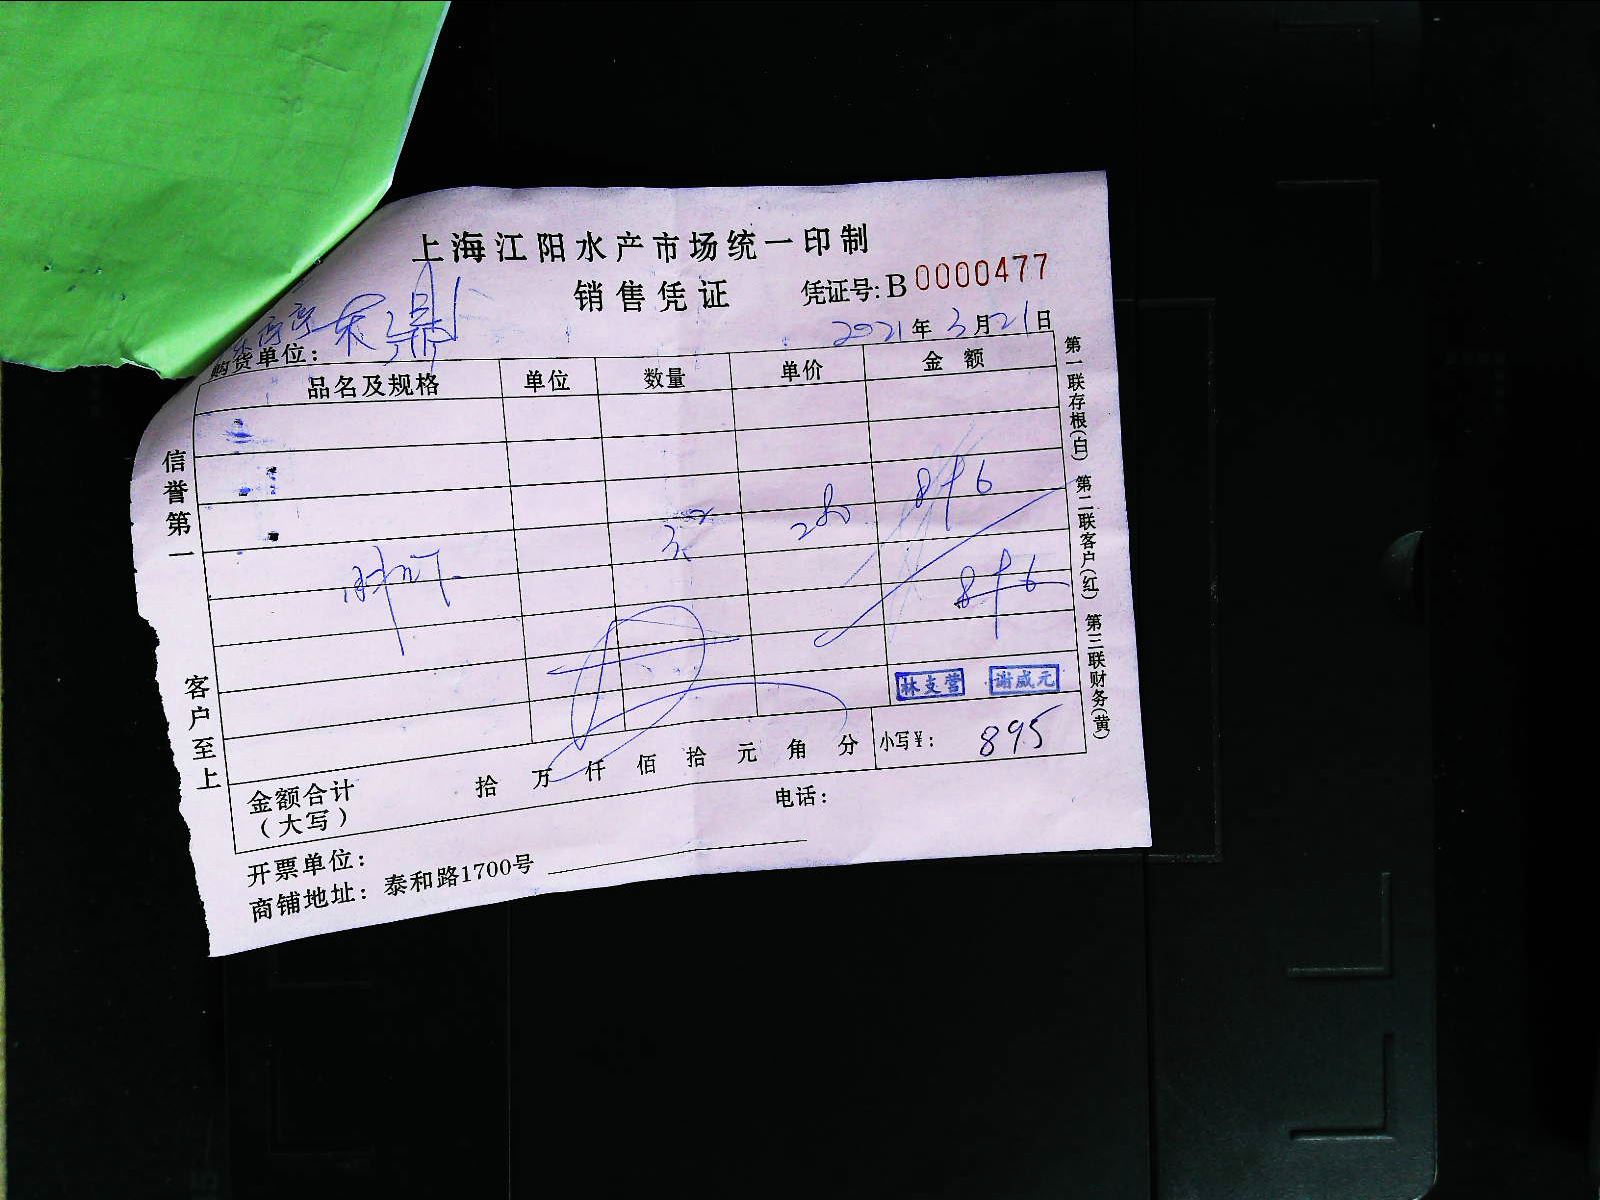 上海江阳水产市场统一印制
销售凭证
凭证号:B 0000477
2021年3月21日
购货单位:
品名及规格 单位 数量 单价 金额
小写¥: 895
金额合计(大写) 拾 万 仟 佰 拾 元 角 分
林支营 谢咸元
开票单位: 电话:
商铺地址: 泰和路1700号
信誉第一 客户至上
第一联存根(白) 第二联客户(红) 第三联财务(黄)